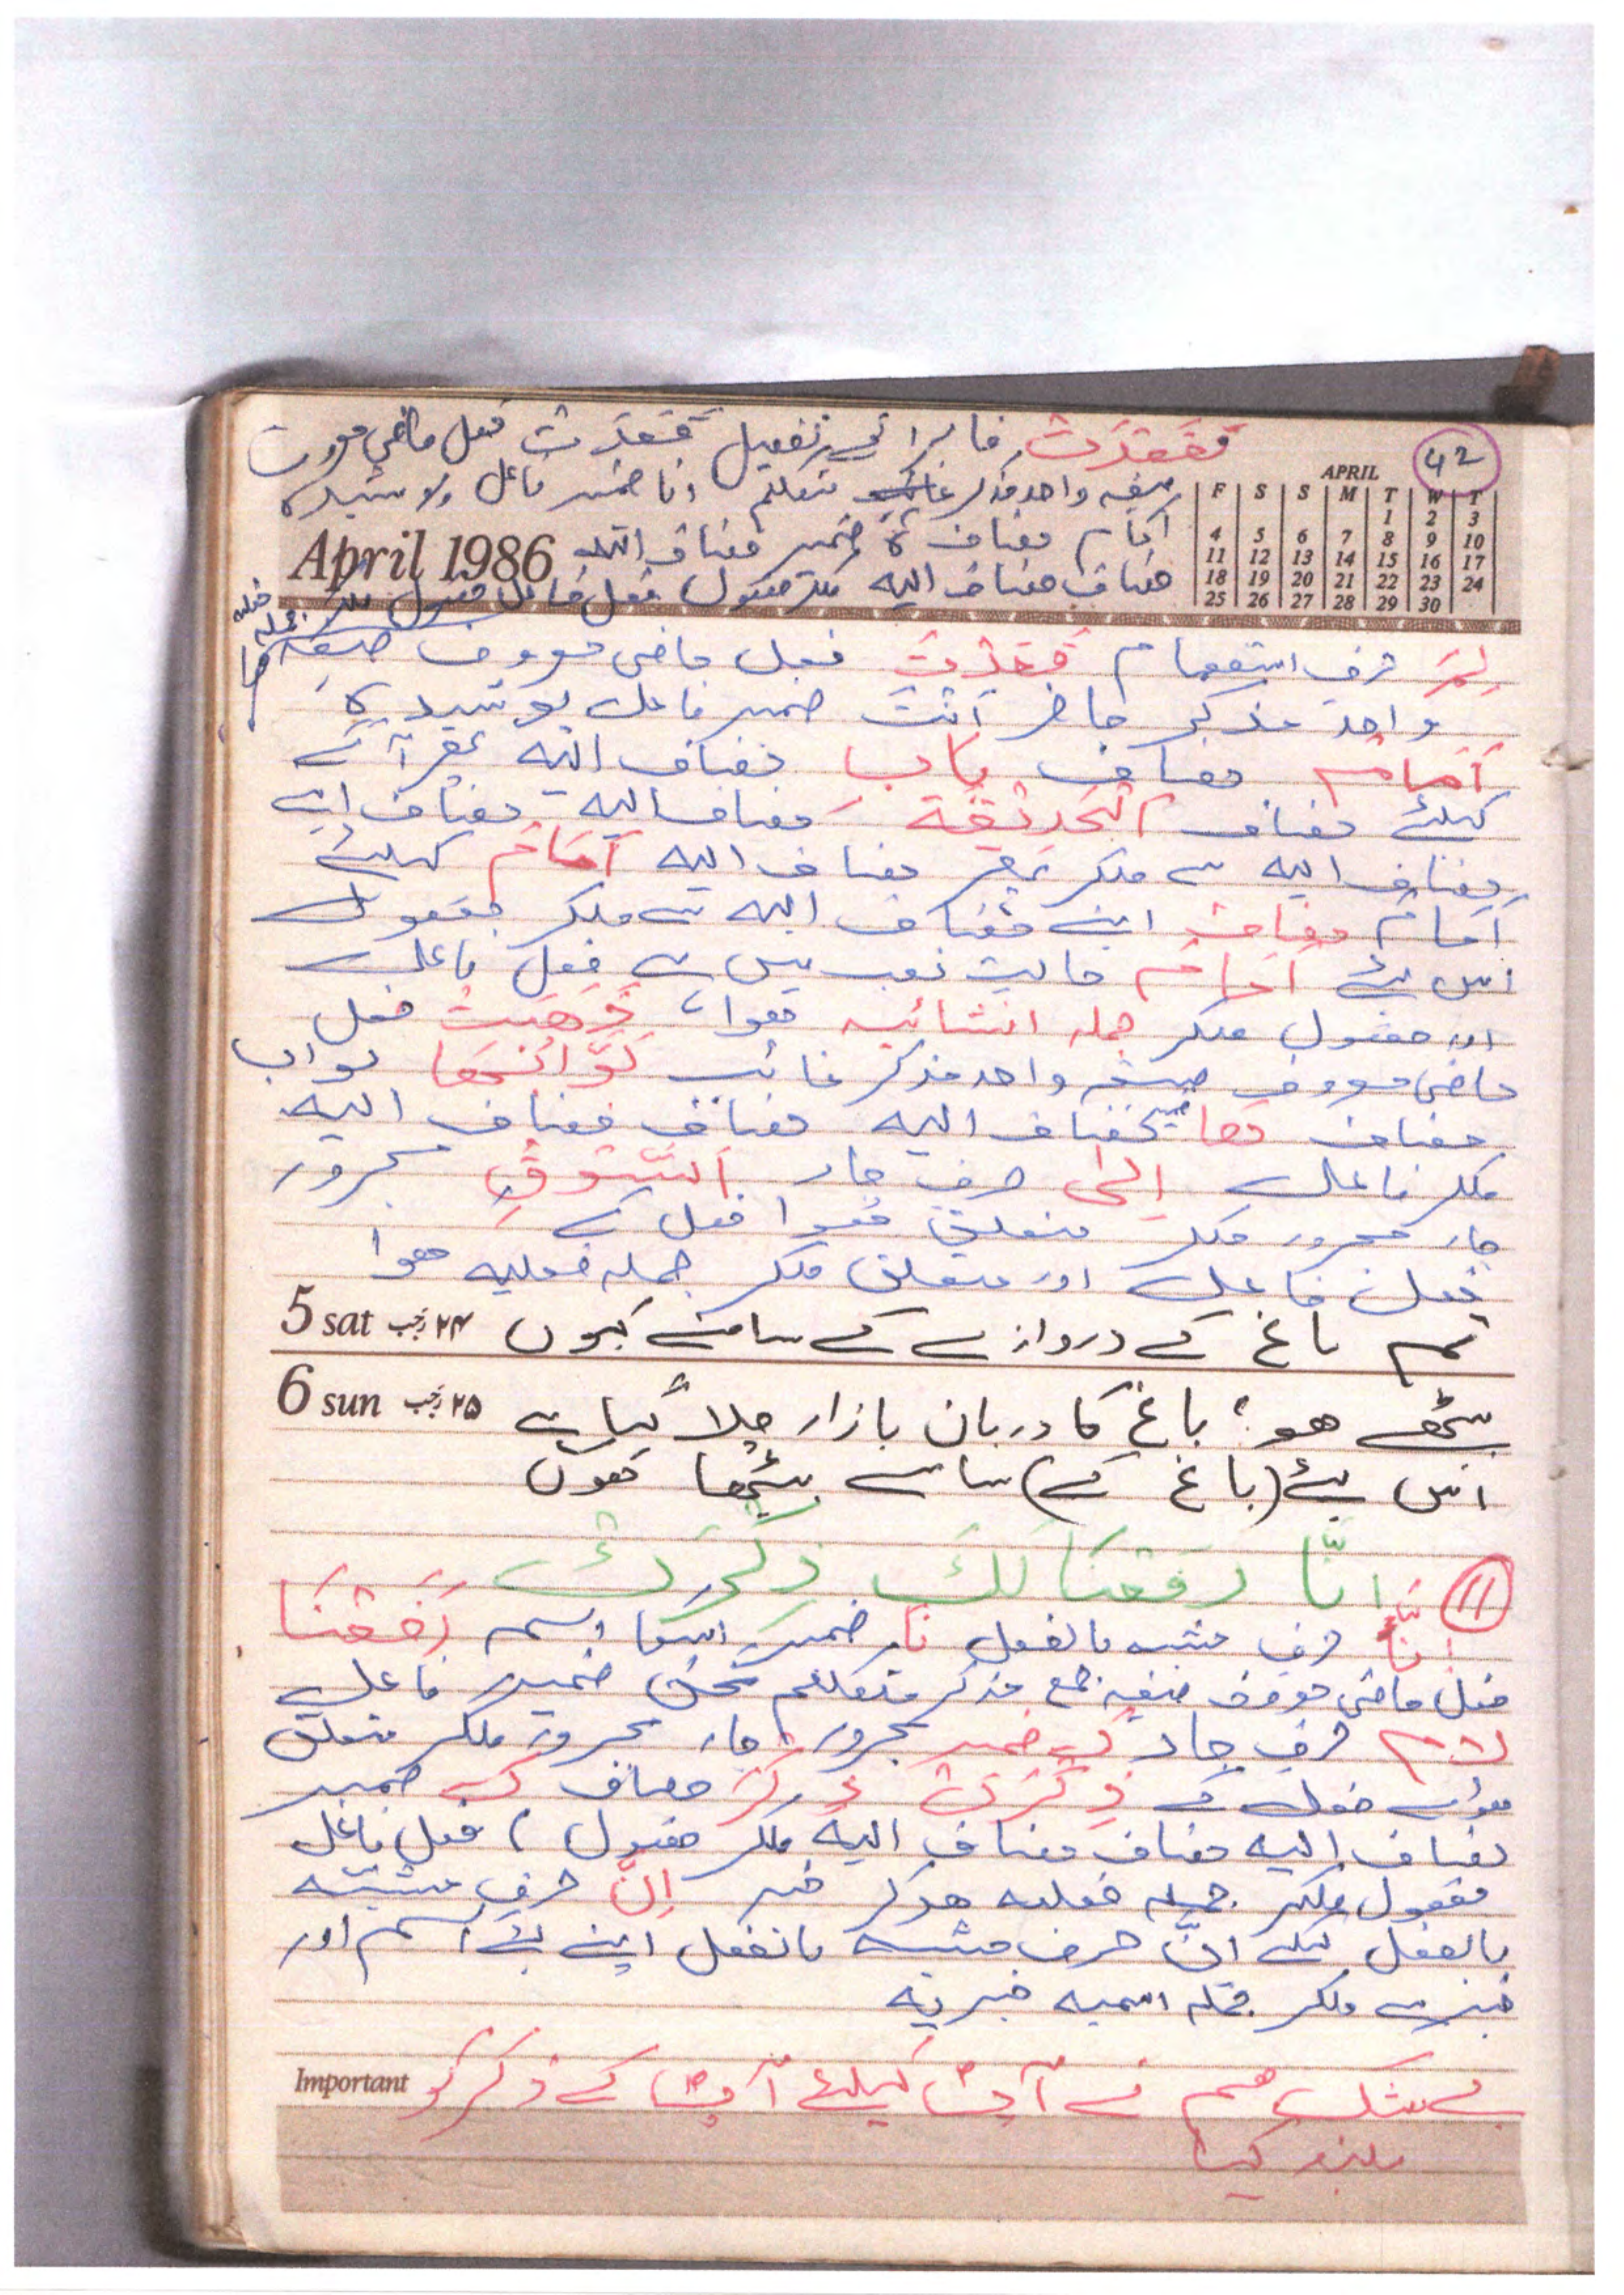 42
فقعدت فا برائے تفعیل قعدت فعل ماضی معروف
صیغہ واحد مذکر متکلم انا ضمیر فاعل پوشیدہ
امام مضاف ہٗ ضمیر مضاف الیہ
مضاف مضاف الیہ ملکر مفعول فعل فاعل مفعول ملکر جملہ فعلیہ ہوا
APRIL
F S S M T W T
1 2 3
4 5 6 7 8 9 10
11 12 13 14 15 16 17
18 19 20 21 22 23 24
25 26 27 28 29 30
April 1986
لِمَ حرف استفہام قَعَدْتَ فعل ماضی معروف صیغہ
واحد مذکر حاضر اَنْتَ ضمیر فاعل پوشیدہ
اَمَامَ مضاف باب مضاف الیہ پھر آگے
کیلئے مضاف الْحَدِیْقَةِ مضاف الیہ مضاف اپنے
مضاف الیہ سے ملکر پھر مضاف الیہ اَمَامَ کیلئے
اَمَامَ مضاف اپنے مضاف الیہ سے ملکر مفعول
اس لئے اَمَامَ حالت نصب میں ہے فعل فاعل
اور مفعول ملکر جملہ انشائیہ ھوا، ذَھَبَتْ فعل
ماضی معروف صیغہ واحد مذکر غائب بَوَّابُھَا بواب
مضاف ھا مضاف الیہ مضاف مضاف الیہ
ملکر فاعل اِلیٰ حرف جار السُّوْقِ مجرور
جار مجرور ملکر متعلق ھوا فعل کے
فعل فاعل اور متعلق ملکر جملہ فعلیہ ھوا
5 sat ۲۴ رجب تم باغ کے دروازے کے سامنے کیوں
6 sun ۲۵ رجب بیٹھے ھو؟ باغ کا دربان بازار چلا گیا ہے
اس لئے (باغ کے) سامنے بیٹھا ھوں
۱۱ اِنَّا رَفَعْنَا لَکَ ذِکْرَکَ
اِنَّا حرف مشبہ بالفعل نَا ضمیر اسکا اسم رَفَعْنَا
فعل ماضی معروف صیغہ جمع مذکر متکلم نحن ضمیر فاعل
لام حرف جار کَ ضمیر مجرور جار مجرور ملکر متعلق
ھوا فعل کے ذِکْرَکَ ذِکْرَ مضاف کَ ضمیر
مضاف الیہ مضاف مضاف الیہ ملکر مفعول، فعل فاعل
مفعول ملکر جملہ فعلیہ ھوکر خبر اِنَّ حرف مشبہ
بالفعل کیلئے اِنَّ حرف مشبہ بالفعل اپنے اسم اور
خبر سے ملکر جملہ اسمیہ خبریہ
Important بے شک ھم نے آپؐ کیلئے آپؐ کے ذکر کو
بلند کیا